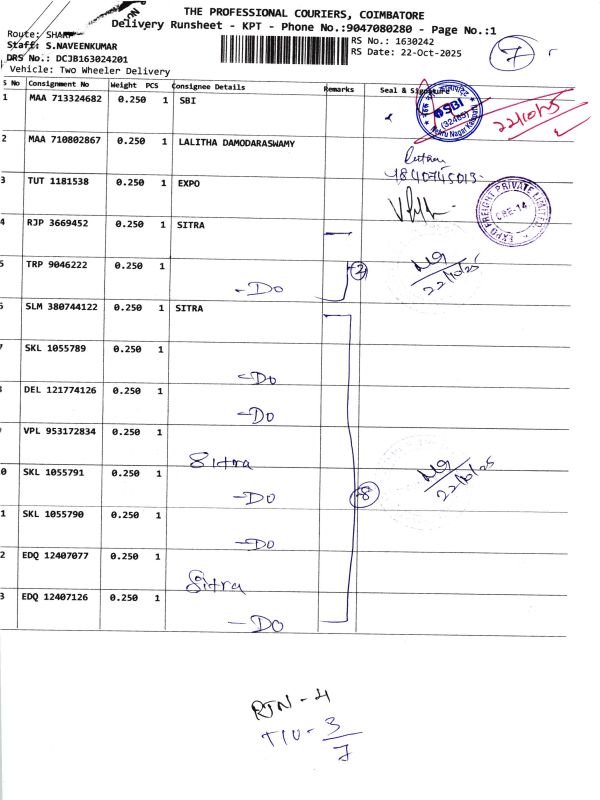 THE PROFESSIONAL COURIERS, COIMBATORE
Delivery Runsheet - KPT - Phone No.:9047080280 - Page No.:1
Route: SHARP
Staff: S.NAVEENKUMAR
DRS No.: DCJB163024201
Vehicle: Two Wheeler Delivery
RS No.: 1630242
RS Date: 22-Oct-2025
7
S No Consignment No Weight PCS Consignee Details Remarks Seal & Signature
1 MAA 713324682 0.250 1 SBI
SBI
(32465)
22/10/25
2 MAA 710802867 0.250 1 LALITHA DAMODARASWAMY
3 TUT 1181538 0.250 1 EXPO
EXPO FREIGHT PRIVATE LIMITED
CBE-14
4 RJP 3669452 0.250 1 SITRA
5 TRP 9046222 0.250 1 -Do 2
22/10/25
6 SLM 380744122 0.250 1 SITRA
7 SKL 1055789 0.250 1 -Do
8 DEL 121774126 0.250 1 -Do
9 VPL 953172834 0.250 1 Sitra
0 SKL 1055791 0.250 1 -Do 8
22/10/25
1 SKL 1055790 0.250 1 -Do
2 EDQ 12407077 0.250 1 Sitra
3 EDQ 12407126 0.250 1 -Do
RTN - 4
TIU - 3
7